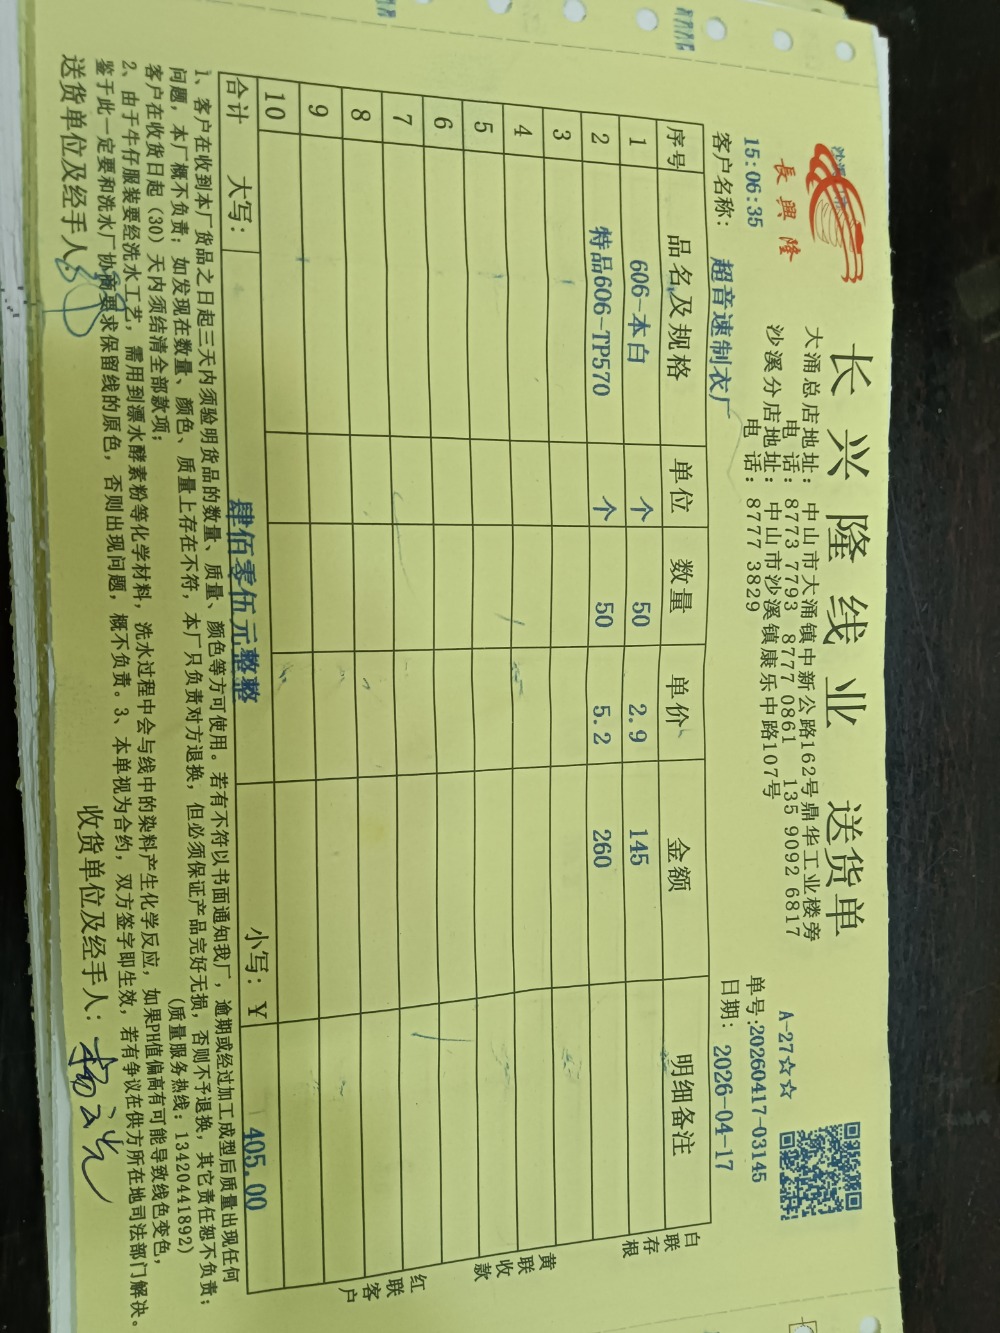 長興隆
长兴隆线业 送货单
大涌总店地址：中山市大涌镇中新公路162号鼎华工业楼旁
电 话：8773 7793 8777 0861 135 9092 6817
沙溪分店地址：中山市沙溪镇康乐中路107号
电 话：8777 3829
A-27☆☆
15:06:35
单号:20260417-03145
客户名称： 超音速制衣厂
日期： 2026-04-17
序号 品名及规格 单位 数量 单价 金额 明细备注
1 606-本白 个 50 2.9 145
2 特品606-TP570 个 50 5.2 260
3
4
5
6
7
8
9
10
合计 大写： 肆佰零伍元整整 小写：¥ 405.00
白联存根
黄联收款
红联客户
1、客户在收到本厂货品之日起三天内须验明货品的数量、质量、颜色等方可使用。若有不符以书面通知我厂，逾期或经过加工成型后质量出现任何
问题，本厂概不负责；如发现在数量、颜色、质量上存在不符，本厂只负责对方退换，但必须保证产品完好无损，否则不予退换，其它责任恕不负责；
客户在收货日起（30）天内须结清全部款项；
(质量服务热线：13420441892)
2、由于牛仔服装要经洗水工艺，需用到漂水酵素粉等化学材料，洗水过程中会与线中的染料产生化学反应，如果PH值偏高有可能导致线色变色，
鉴于此一定要和洗水厂协商要求保留线的原色，否则出现问题，概不负责。3、本单视为合约，双方签字即生效，若有争议在供方所在地司法部门解决。
送货单位及经手人：
收货单位及经手人：